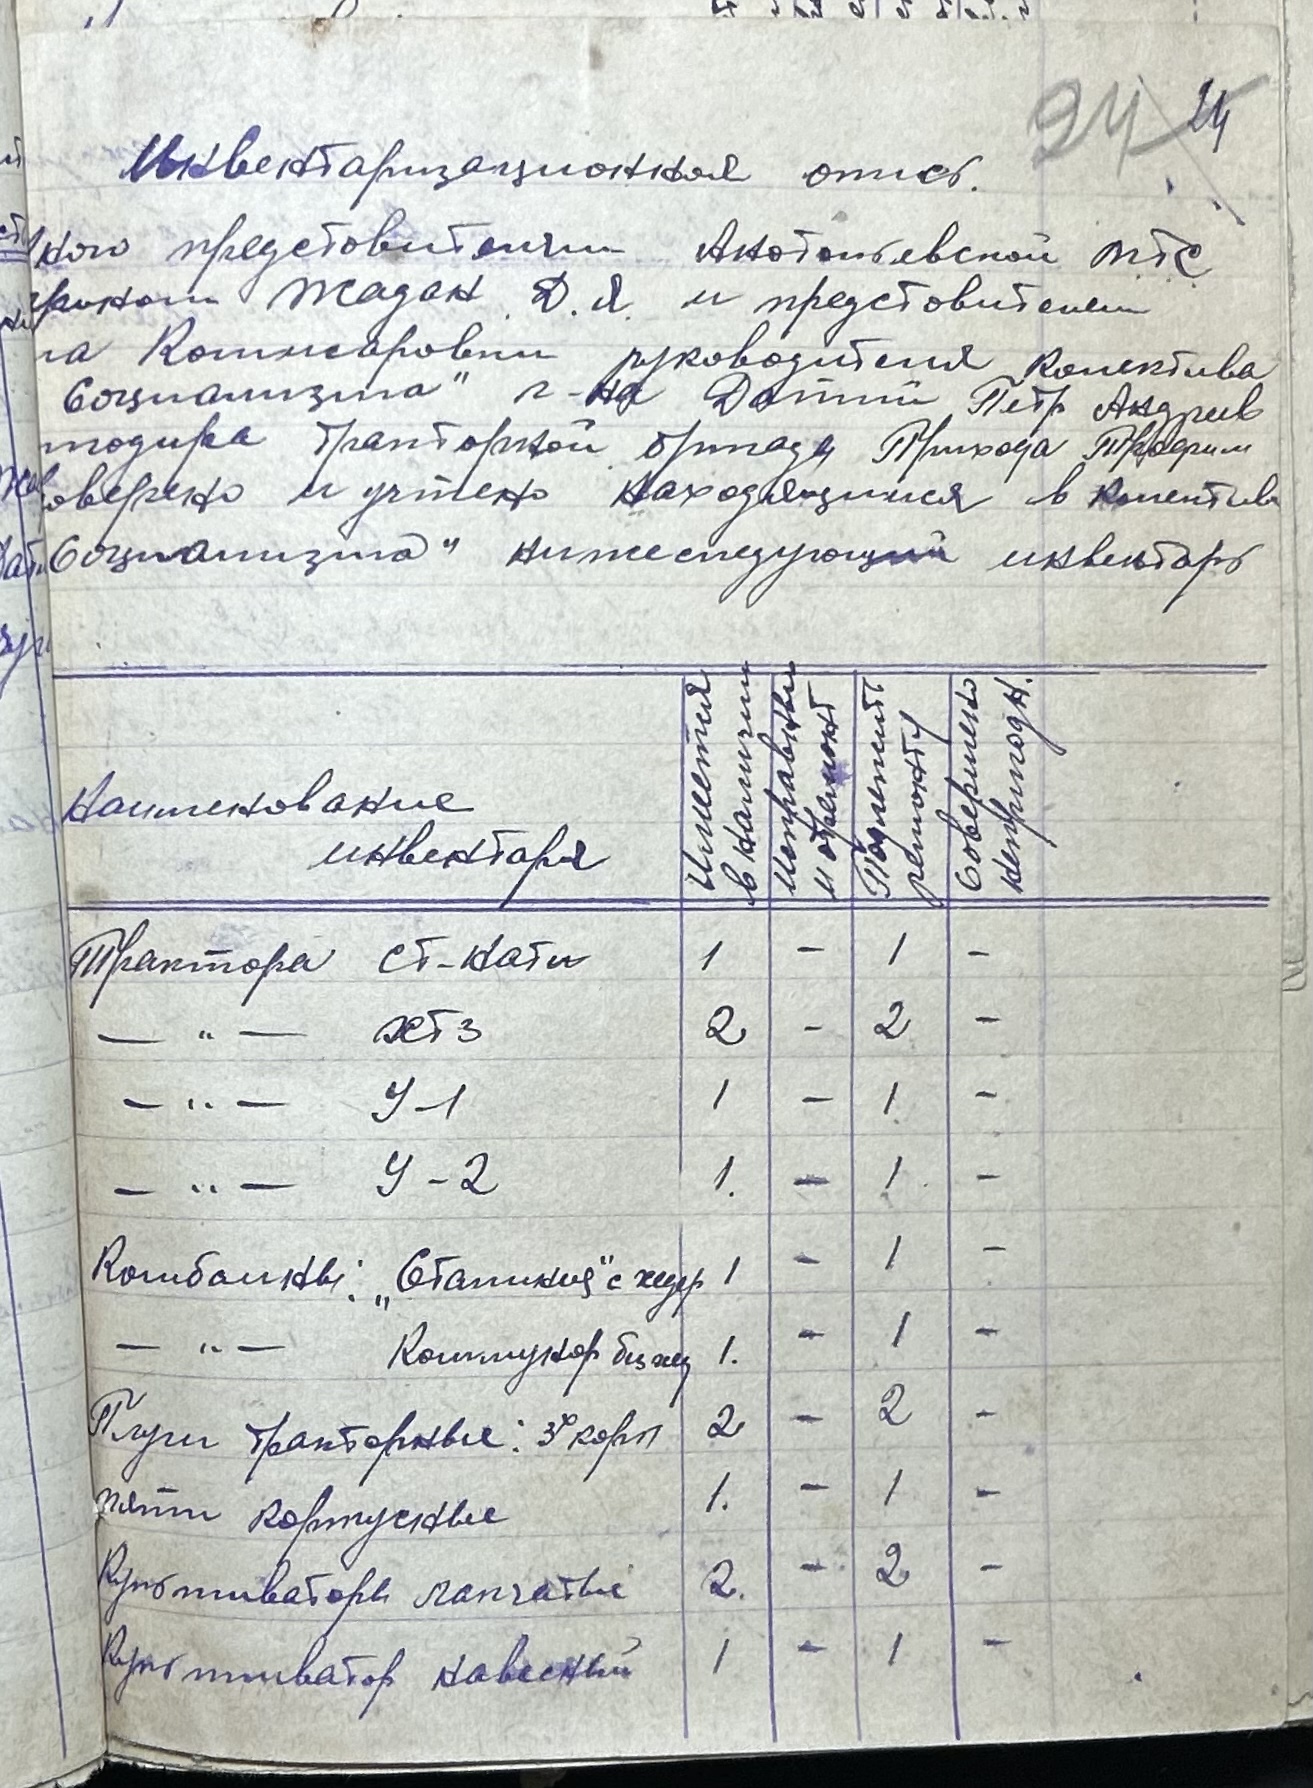 24 24
Инвентаризационная опись.
представителем Анатольевской МТС
Жадан Д. Я. и представителем
на Комисаровки руководителя колектива
Социализма" г-на Петр Андреев
тракторной бригады Прихода
оверено и учтено находящийся в колектива
Социализма" нижеследующий инвентарь
Наименование инвентаря
Имеется в наличии
Исправный и отремонт
Подлежит ремонту
Совершенно непригодн.
Трактора СТ-Нати 1 - 1 -
— " — ХТЗ 2 - 2 -
— " — У-1 1 - 1 -
— " — У-2 1. - 1. -
Комбайны: „Сталинец" с хедер 1 - 1 -
— " — Коммунар без хед 1. - 1 -
Плуги тракторные: 3х корп 2 - 2 -
пяти корпусные 1. - 1 -
Культиваторы лапчатые 2. - 2 -
Культиватор навесный 1 - 1 -